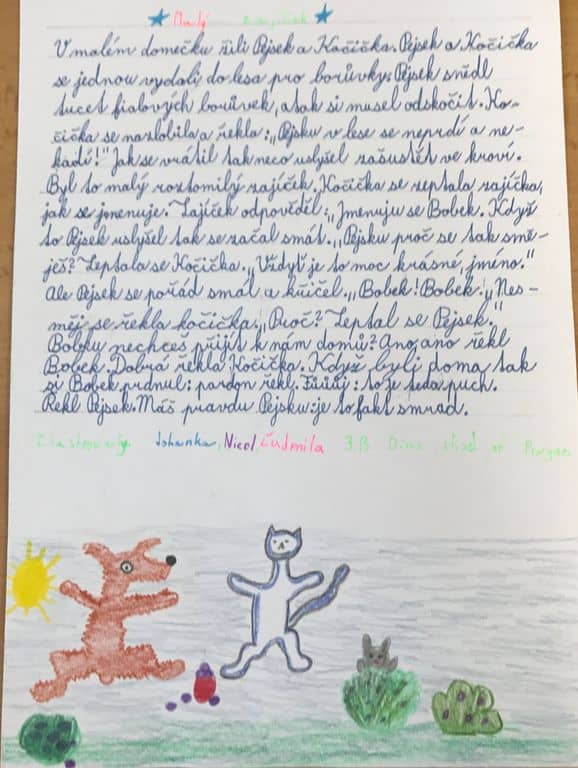 Malý
V malém domečku žili Pejsek a Kočička. Pejsek a Kočička
se jednou vydali do lesa pro borůvky. Pejsek snědl
tucet fialových borůvek, a tak si musel odskočit. Ko-
čička se nazlobila a řekla: „Pejsku v lese se neprdí a ne-
kadí!" Jak se vrátil tak neco uslyšel zašustět ve kroví.
Byl to malý roztomilý zajíček. Kočička se zeptala zajíčka,
jak se jmenuje. Zajíček odpověděl: „Jmenuju se Bobek. Když
to Pejsek uslyšel tak se začal smát. „Pejsku proč se tak smě-
ješ? Zeptala se Kočička. „Vždyť je to moc krásné, jméno."
Ale Pejsek se pořád smál a křičel. „Bobek! Bobek. „Nes-
měj se řekla kočička. „Proč? Zeptal se Pejsek."
Bobku nechceš přijít k nám domů? Ano, ano řekl
Bobek. Dobrá řekla Kočička. Když byli doma tak
si Bobek prdnul: pardon řekl. Fůůůj: to je teda puch.
Řekl Pejsek. Máš pravdu Pejsku: je to fakt smrad.
Johanka, Nicol, Ludmila 3.B